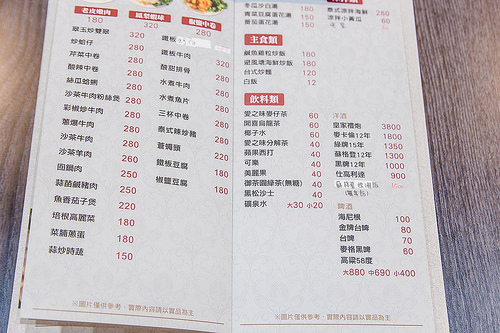 老皮嫩肉
180
鳳梨蝦球
320
椒鹽中卷
280
翠玉炒雙翠 320
炒蛤仔 280
芹菜中卷 280
酸辣中卷 280
絲瓜蛤蜊 280
沙茶牛肉粉絲煲 280
彩椒炒牛肉 280
蔥爆牛肉 280
沙茶牛肉 280
沙茶羊肉 260
回鍋肉 250
蒜苗鹹豬肉 250
魚香茄子煲 220
培根高麗菜 180
菜脯蔥蛋 180
蒜炒時蔬 150
鐵板
鐵板牛肉 320
醋甜排骨 280
水煮牛肉 280
水煮魚片 280
三杯中卷 280
泰式辣炒豬 280
蒼蠅頭 220
鐵板豆腐 180
椒鹽豆腐 180
冬瓜沙白湯 180
青菜豆腐蛋花湯 150
番茄蛋花湯 150
泰式涼拌海鮮 280
涼拌小黃瓜 60
主食類
鹹魚雞粒炒飯 180
避風塘海鮮炒飯 180
台式炒麵 120
白飯 12
飲料類
愛之味麥仔茶 60
開喜烏龍茶 60
椰子水 60
愛之味分解茶 40
蘋果西打 40
可樂 40
美麗果 40
御茶園綠茶(無糖) 40
黑松沙士 40
礦泉水 大30 小20
洋酒
皇家禮炮 3800
麥卡倫12年 1800
綠牌15年 1350
蘇格登12年 1300
黑牌12年 1000
仕高利達 900
啤酒
海尼根 100
金牌台啤 80
台啤 70
麥格黑啤 60
高粱58度
大880 中690 小400
※圖片僅供參考，實際內容請以實品為主
※圖片僅供參考，實際內容請以實品為主